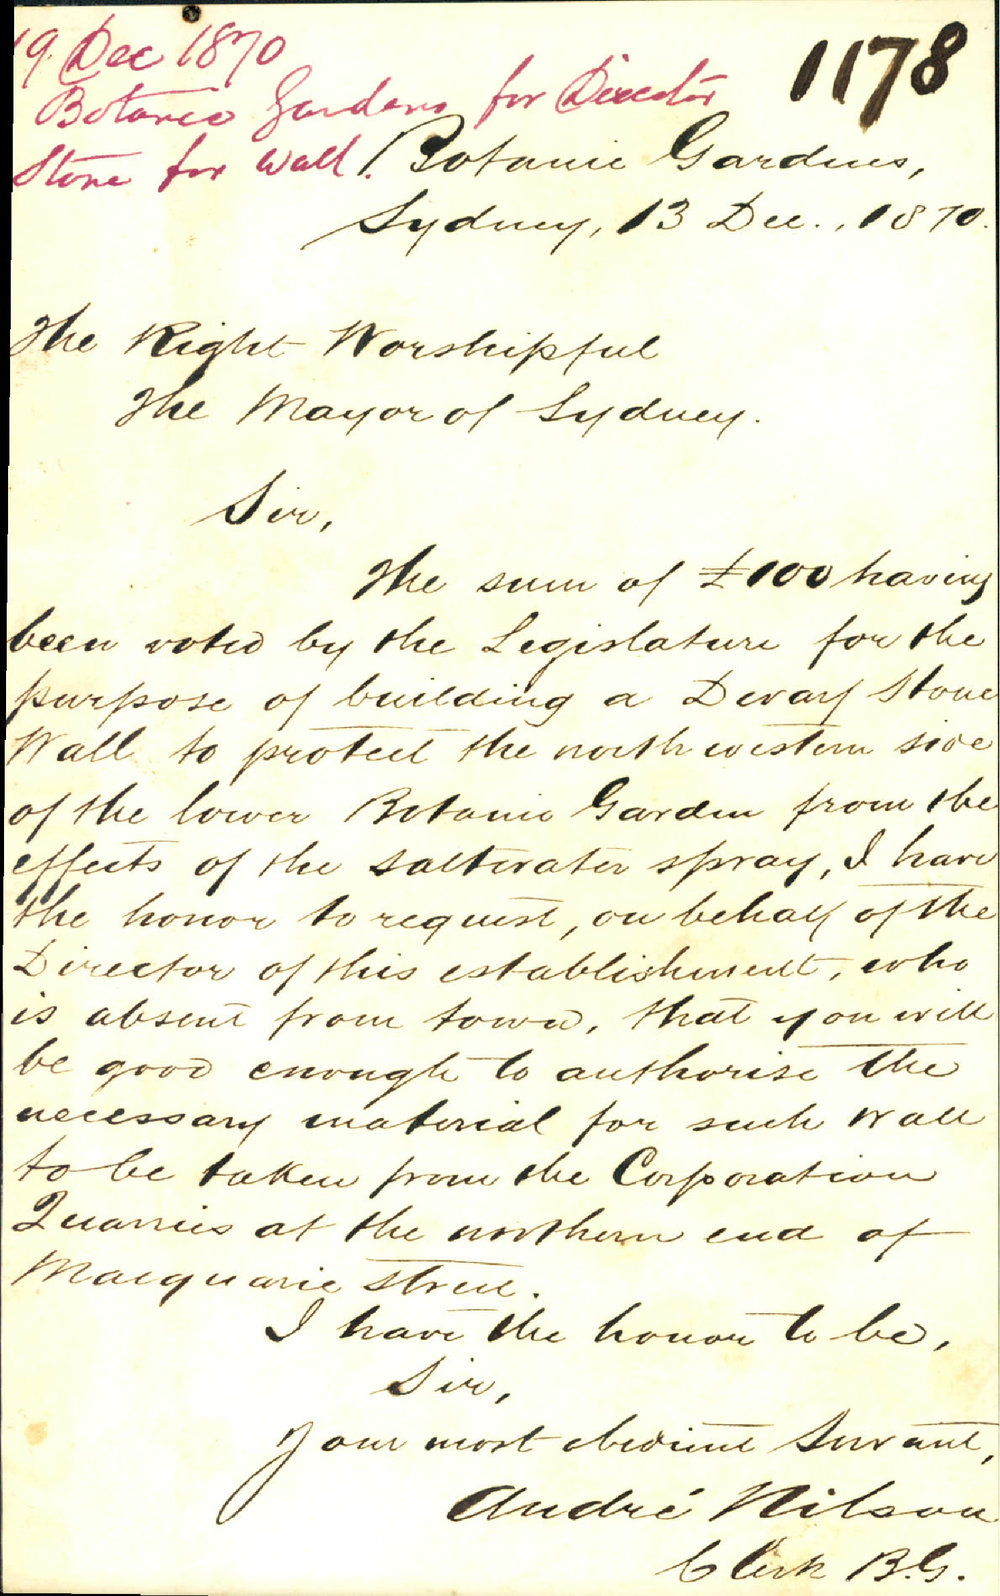 19 Dec 1870
1178
Botanic Gardens for Director
Stone for Wall.
Botanic Gardens,
Sydney, 13 Dec., 1870.
The Right Worshipful
The Mayor of Sydney.
Sir,
The sum of £100 having
been voted by the Legislature for the
purpose of building a Dwarf Stone
Wall to protect the north western side
of the lower Botanic Garden from the
effects of the saltwater spray, I have
the honor to request, on behalf of the
Director of this establishment, who
is absent from town, that you will
be good enough to authorise the
necessary material for such Wall
to be taken from the Corporation
Quarries at the northern end of
Macquarie Street.
I have the honor to be,
Sir,
Your most obedient Servant,
André Nilson
Clerk B.G.